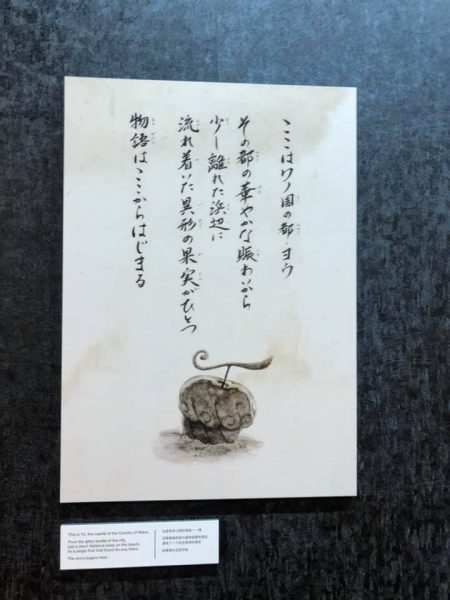 ここはワノ国の都・ヨウ
その都の華やかな賑わいから
少し離れた浜辺に
流れ着いた異形の果実がひとつ
物語はここからはじまる
This is Yo, the capital of the Country of Wano.
From the glitzy bustle of the city,
just a short distance away on the beach,
is a single fruit that found its way there.
The story begins here.